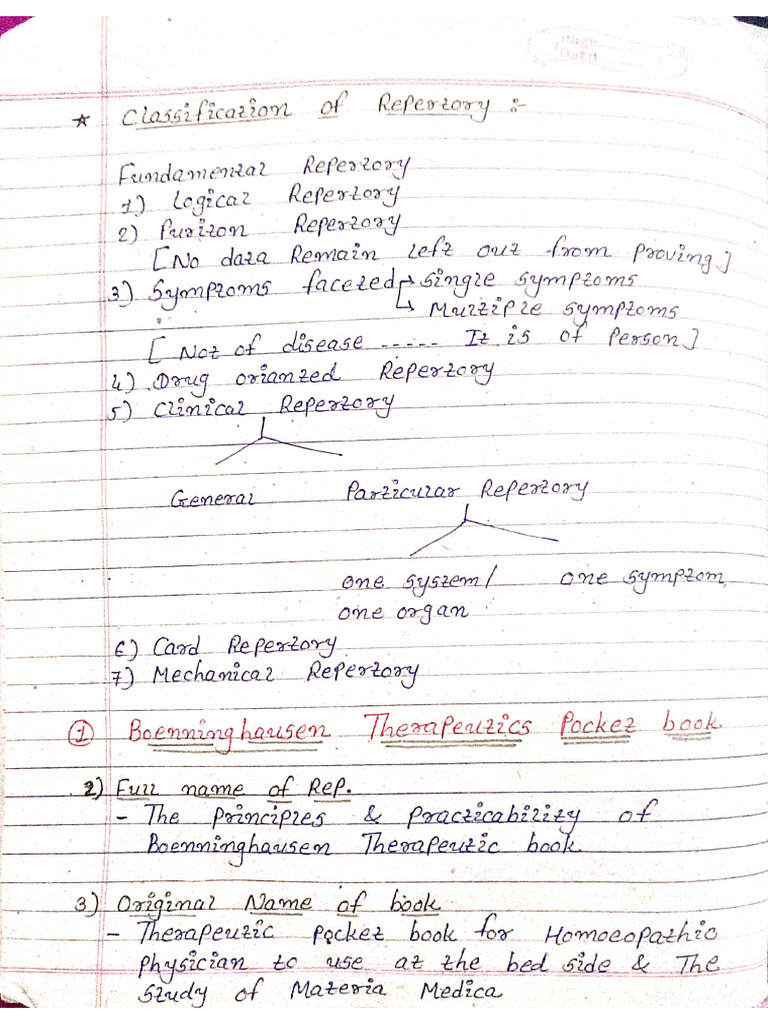 Page
Date
* Classification of Repertory :-
Fundamental Repertory
1) Logical Repertory
2) Puriton Repertory
[No data Remain left out from proving]
3) Symptoms faceted → single symptoms
→ Multiple symptoms
[Not of disease ----- It is of Person]
4) Drug orianted Repertory
5) Clinical Repertory
General Particular Repertory
one system/ one symptom
one organ
6) Card Repertory
7) Mechanical Repertory
① Boenninghausen Therapeutics Pocket book
2) Full name of Rep.
- The principles & practicability of
Boenninghausen Therapeutic book
3) Original Name of book
- Therapeutic pocket book for Homoeopathic
physician to use at the bed side & The
Study of Materia Medica